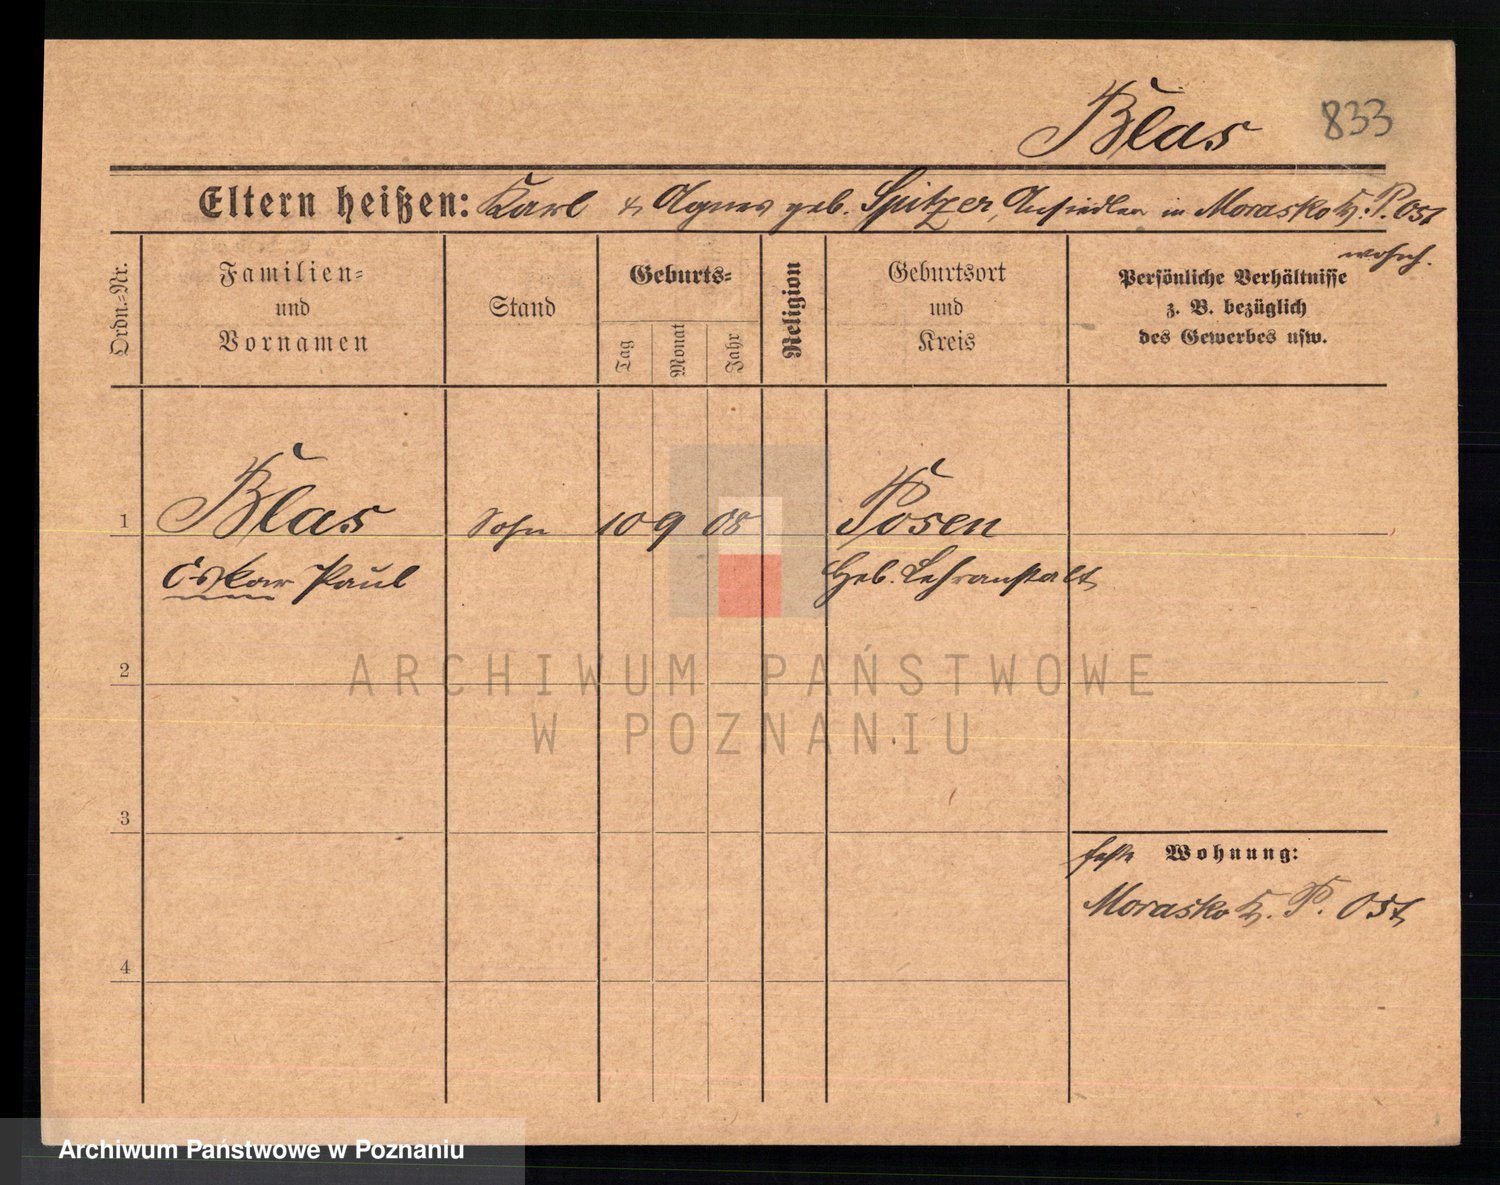 Blas 833
Eltern heißen: Karl & Agnes geb. Spitzer, Ansiedler in Morasko Kr. P. Ost
wohnh.
Ordn.=Nr.
Familien=
und
Vornamen
Stand
Geburts=
Tag
Monat
Jahr
Religion
Geburtsort
und
Kreis
Persönliche Verhältnisse
z. B. bezüglich
des Gewerbes usw.
1 Blas Sohn 10 9 08 Posen
Oskar Paul Heb. Lehranstalt
2
3
feste Wohnung:
Morasko Kr. P. Ost
4
ARCHIWUM PAŃSTWOWE
W POZNANIU
Archiwum Państwowe w Poznaniu